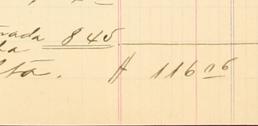 rada 8 45
ha
lta. # 116 06